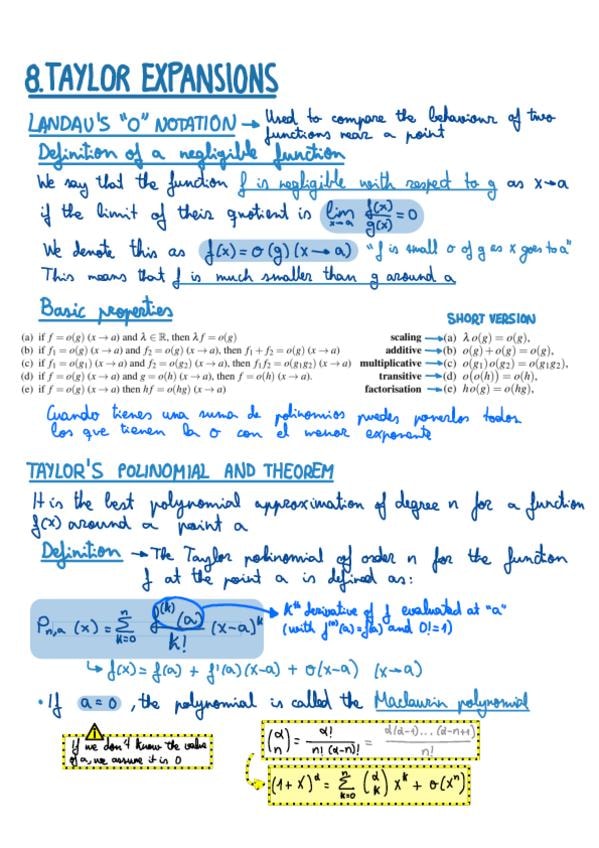 8.TAYLOR EXPANSIONS
LANDAU'S "O" NOTATION → Used to compare the behaviour of two
functions near a point
Definition of a negligible function
We say that the function f is negligible with respect to g as x→a
if the limit of their quotient is lim x→a f(x)/g(x) = 0
We denote this as f(x) = o(g) (x→a) "f is small o of g as x goes to a"
This means that f is much smaller than g around a
Basic properties
SHORT VERSION
(a) if f = o(g) (x → a) and λ ∈ ℝ, then λf = o(g) scaling → (a) λo(g) = o(g),
(b) if f₁ = o(g) (x → a) and f₂ = o(g) (x → a), then f₁ + f₂ = o(g) (x → a) additive → (b) o(g) + o(g) = o(g),
(c) if f₁ = o(g₁) (x → a) and f₂ = o(g₂) (x → a), then f₁f₂ = o(g₁g₂) (x → a) multiplicative → (c) o(g₁)o(g₂) = o(g₁g₂),
(d) if f = o(g) (x → a) and g = o(h) (x → a), then f = o(h) (x → a). transitive → (d) o(o(h)) = o(h),
(e) if f = o(g) (x → a) then hf = o(hg) (x → a) factorisation → (e) ho(g) = o(hg),
Cuando tienes una suma de polinomios puedes ponerlos todos
los que tienen la o con el menor exponente
TAYLOR'S POLINOMIAL AND THEOREM
It is the best polynomial approximation of degree n for a function
f(x) around a point a
Definition → The Taylor polinomial of order n for the function
f at the point a is defined as:
Pₙ,ₐ (x) = Σ k=0 n f⁽ᵏ⁾(a)/k! (x-a)ᵏ
Kᵗʰ derivative of f evaluated at "a"
(with f⁽⁰⁾(a)=f(a) and 0!=1)
↳ f(x) = f(a) + f'(a)(x-a) + o(x-a) (x→a)
• If a=0, the polynomial is called the Maclaurin polynomial
If we don't know the value
of a, we assume it is 0
(α n) = α!/n!(α-n)! = α(α-1)...(α-n+1)/n!
(1+x)^α = Σ k=0 n (α k) xᵏ + o(xⁿ)